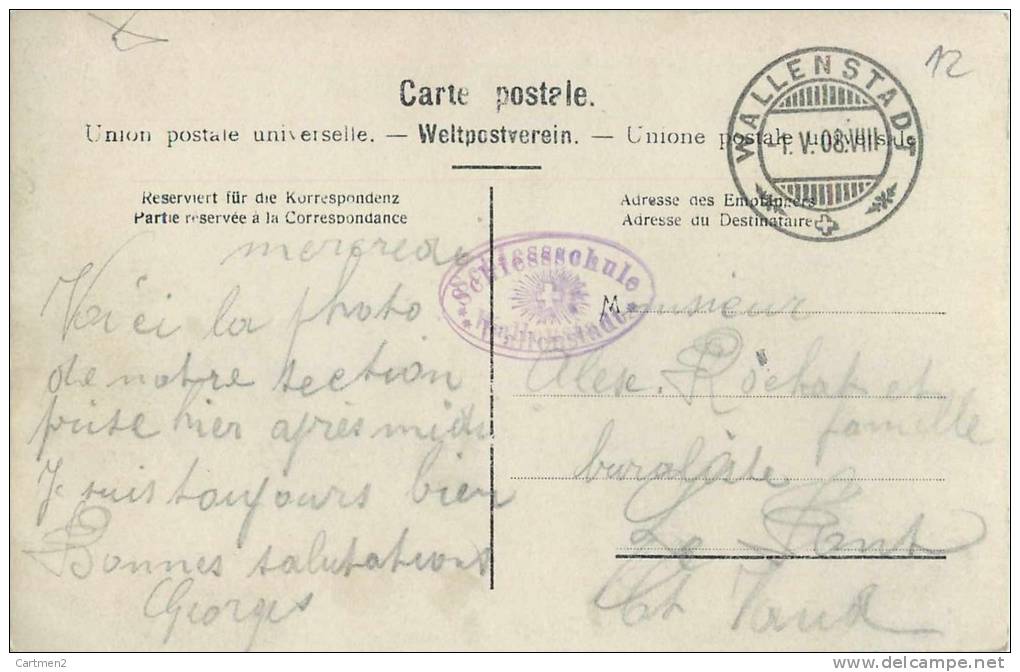 12
Carte postale.
Union postale universelle. — Weltpostverein. — Unione postale universale
WALLENSTADT
-1.V.08.VIII
Reserviert für die Korrespondenz
Partie réservée à la Correspondance
Adresse des Empfängers
Adresse du Destinataire
Schiessschule
Wallenstadt
mercredi
Voici la photo
de notre section
prise hier après midi
Je suis toujours bien
Bonnes salutations
Georges
Monsieur
Alex. Rochat et
famille
buraliste
Le Pont
Ct Vaud
Cartmen2
delcampe.net